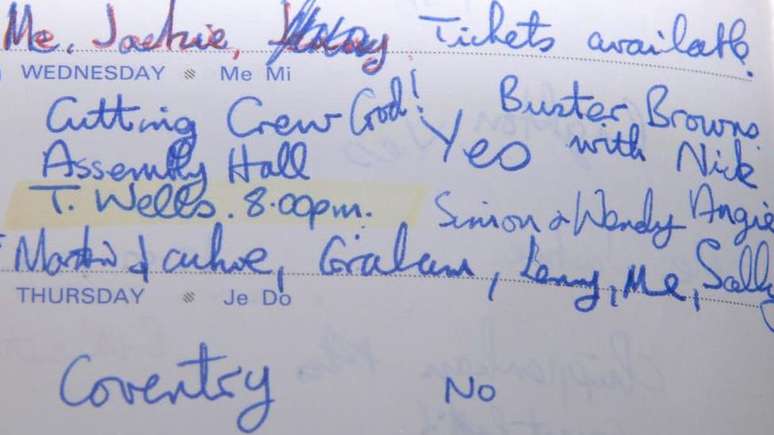 Me, Jackie, Tickets available.
WEDNESDAY Me Mi
Cutting Crew Good! Buster Browns
Assembly Hall Yes with Nick
T. Wells. 8.00pm. Simon & Wendy Angie
Martin Jackie, Graham, Lenny, Me, Sally
THURSDAY Je Do
Coventry No